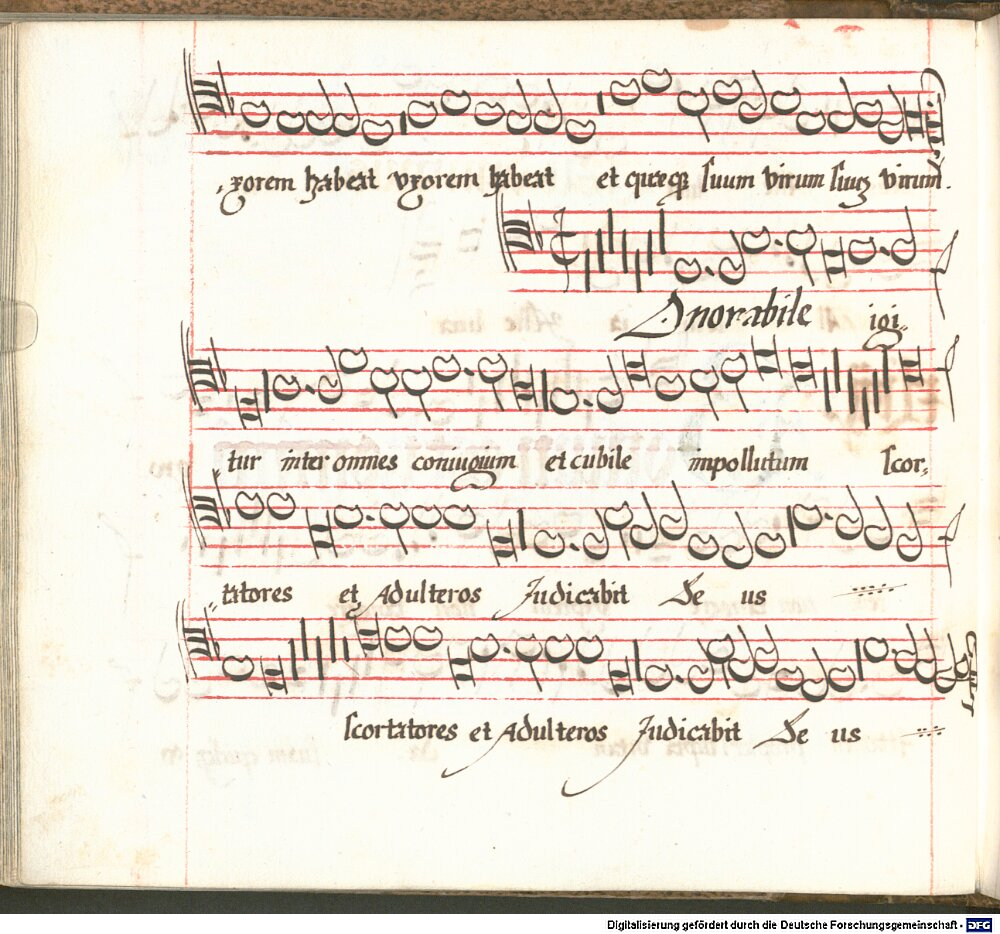 ,xorem habeat vxorem habeat et quęq suum virum suuȝ virum.
Onorabile igi,,
tur inter omnes coniugium et cubile impollutum scor,,
tatores et Adulteros Judicabit De us
scortatores et Adulteros Judicabit De us
Digitalisierung gefördert durch die Deutsche Forschungsgemeinschaft - DFG